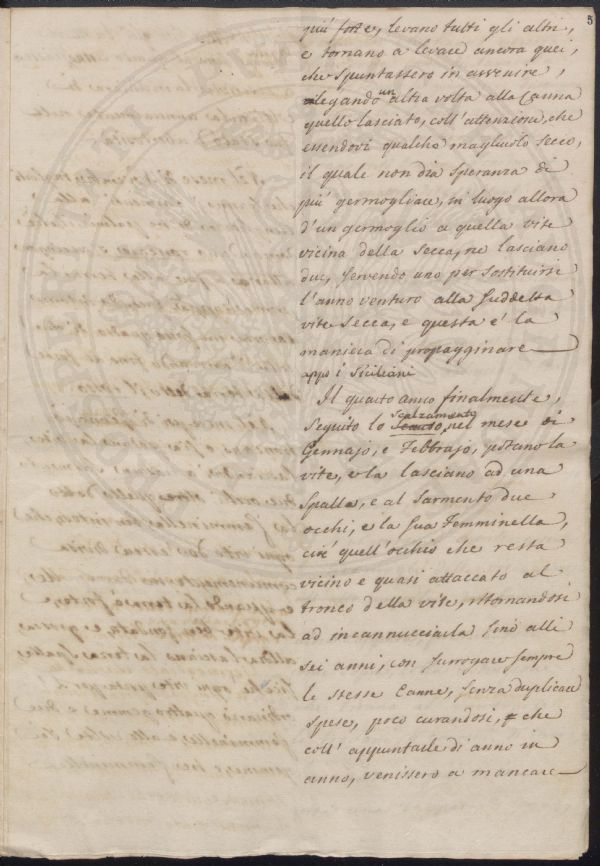 5
più forte, levano tutti gli altri,
e tornano a levare ancora quei,
che spuntassero in avvenire,
legando un'altra volta alla Canna
quello lasciato, coll'attenzione, che
essendovi qualche magliuolo secco,
il quale non dia speranza di
più germogliare, in luogo allora
d'un germoglio a quella vite
vicina della secca, ne lasciano
due, servendo uno per sostituirsi
l'anno venturo alla suddetta
vite secca, e questa è la
maniera di propagginare
appo i Siciliani
Il quarto anno finalmente,
seguito lo scalzamento nel mese di
Gennajo, e Febbrajo, potano la
vite, e la lasciano ad una
spalla, e al sarmento due
occhi, e la sua femminella,
cioè quell'occhio che resta
vicino e quasi attaccato al
tronco della vite, ritornandosi
ad incannucciarla sino alli
sei anni, con surrogare sempre
le stesse Canne, senza duplicare
spese, poco curandosi, che
coll'appuntarle di anno in
anno, venissero a mancare